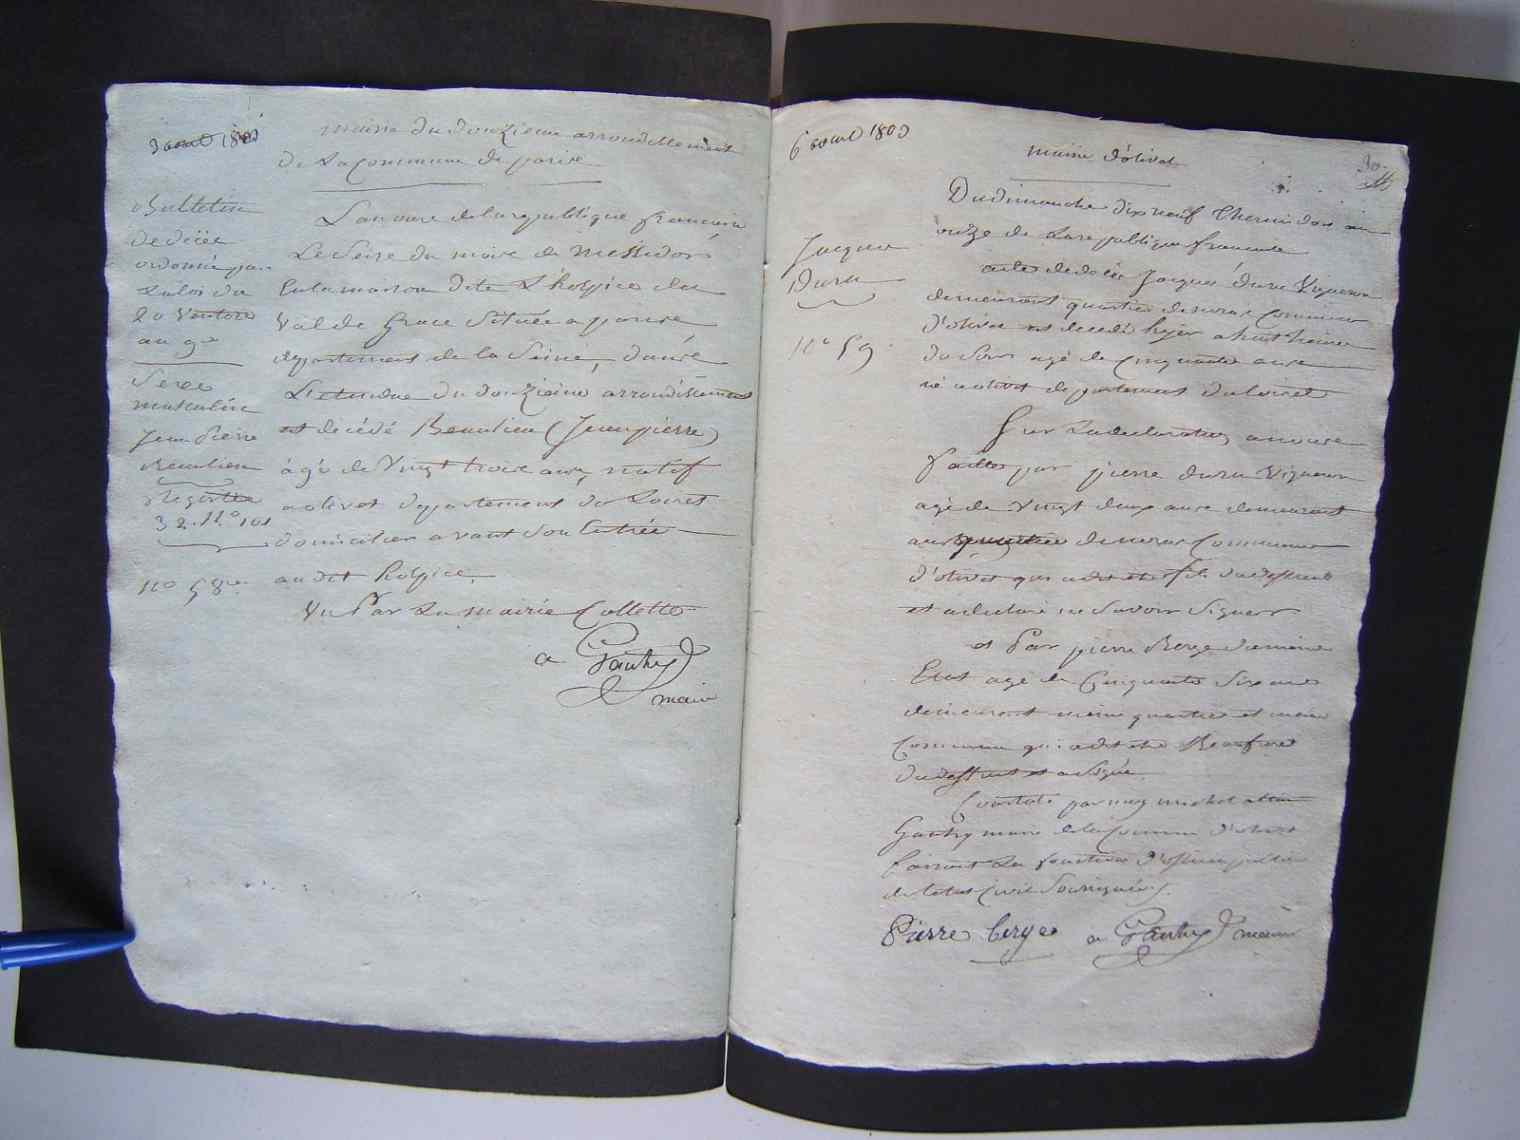 3 aout 1803
mairie du douzieme arrondissement
de La commune de parise
Bulletin
de décé
ordonné par
La loi du
20 Ventose
an 9e
Sexe
masculin
Jean pierre
Beaulieu
Registre
32. No 101
no 58
L'an onze de la republique francaise
Le Seize du moise de Messidor
En la maison dite L'hospice du
Val de Grace Située a parise
departement de la Seine, danse
L'etendue du douzieme arrondissement
est decédé Beaulieu (Jean pierre)
âgé de Vingt troise anse natif
a olivet departement du Loiret
domicilier avant Son Entrée
audit hospice,
Vu Par La mairie Collette
a Gauthy
maire
6 aout 1803
mairie d'olivet
30
Jacques
Duru
no 59
Du dimanche dix neuf Thermidore an
onze de La republique francaise
acte de decée Jacques duru Vigneron
demeurant quartier de Commune
d'olivet est decedé hyer a huit heure
du Soir agé de Cinquante anse
né a olivet departement du loiret
Sur La declaration a nouse
faitte par pierre duru Vigneron
agé de Vingt deux anse demeurant
aux quartier de Commune
d'olivet qui a dit etre fils du deffunt
et a declaré ne Savoir Signer
et Par pierre Berge
Etat agé de Cinquante Six anse
demeurant meme quartier et meme
Commune qui a dit etre Beaufrere
du deffunt et a Signé.
Constaté par moy michel
Gauthy maire de la Commune d'olivet
faisant Les fonctions d'officier publique
de l'etat Civil Soussigné
Pierre berge a Gauthy maire